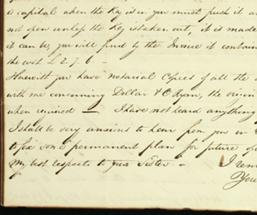 is capital when the Key is in you must push it
not open unless the Key is taken out, it is made
it can be, you will find by the Invoice it contains
the cost £ 2.7.6 –
Herewith you have Notarial Copies of all the
with me concerning Dollar & C Ryan, the origin
when received – I have not heard anything
I shall be very anxious to hear from you
to fix some permanent plan for future
My best respects to your Sister – I rem
Your